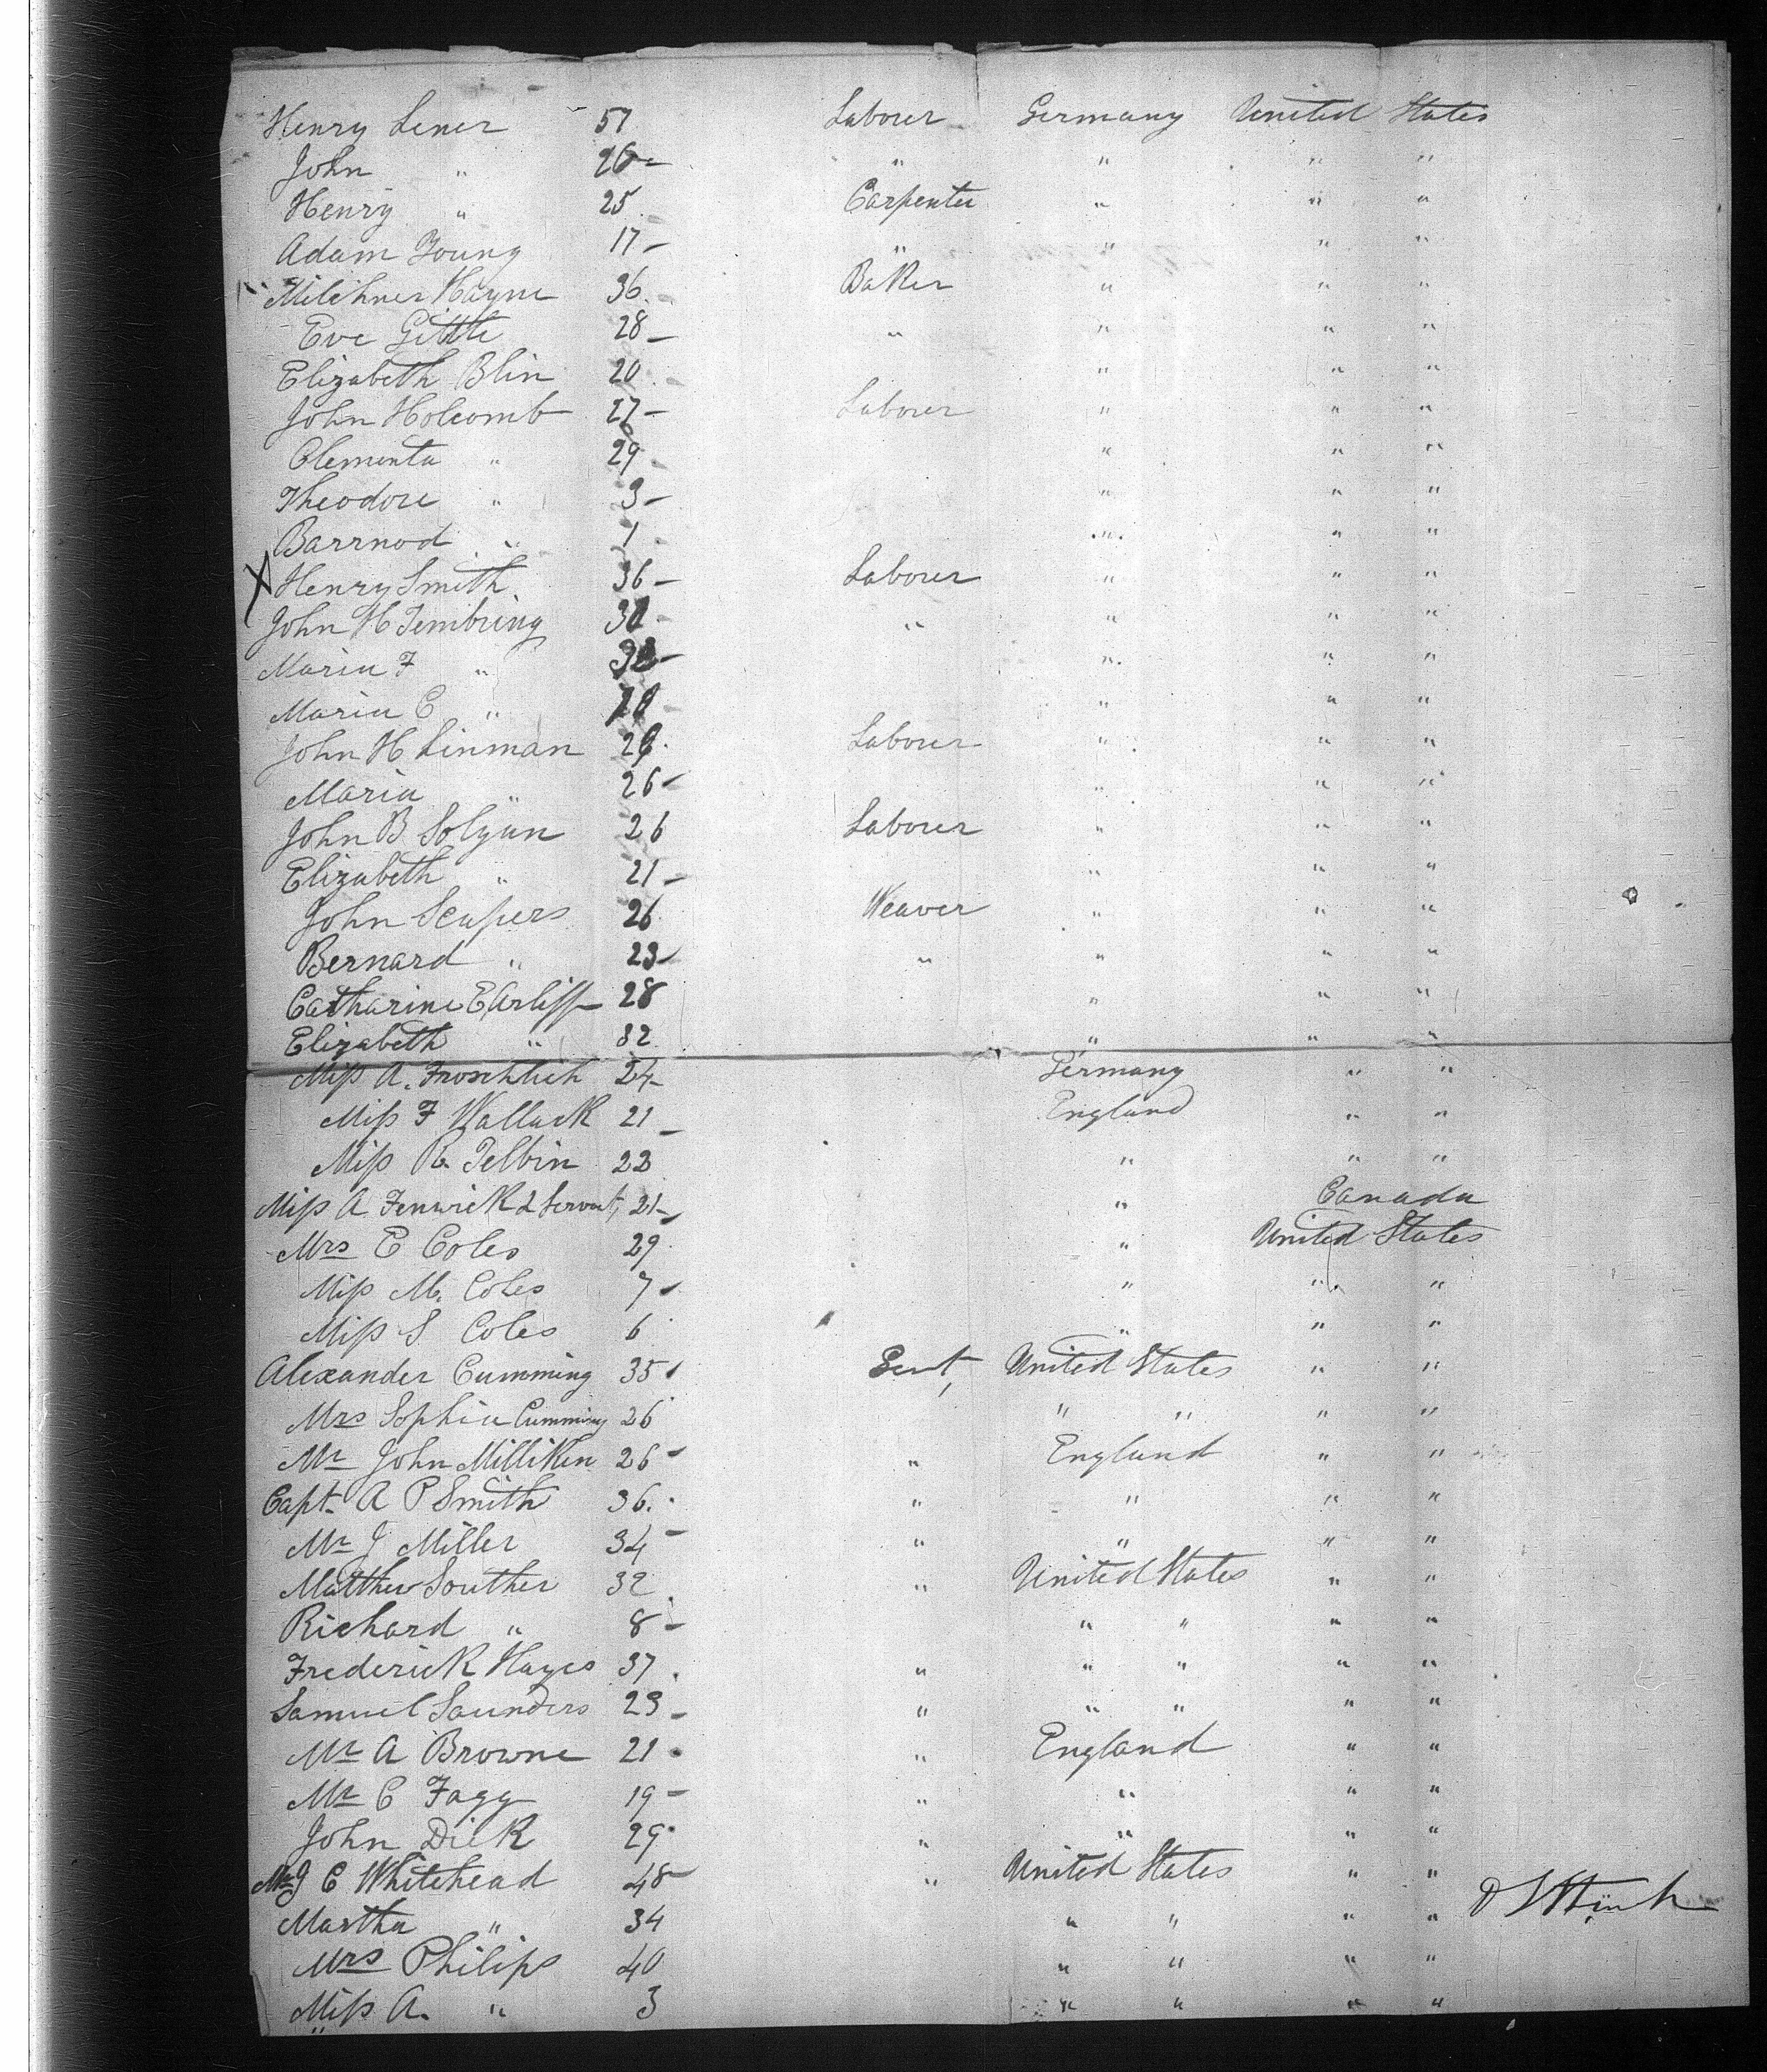 Henry Lener 57 Laborer Germany United States
John " 26 " " " "
Henry " 25 Carpenter " " "
Adam Young 17 " " " "
Milchner Hayne 36 Baker " " "
Eve Gittle 28 " " " "
Elizabeth Blin 20 " " "
John Holcomb 27 Laborer " " "
Clementa " 29 " " "
Theodore " 3 " " "
Barrnod " 1 " " "
X Henry Smith 36 Laborer " " "
John H Tembring " " " "
Maria F " " " "
Maria E " " " "
John H Linman Laborer " " "
Maria " 26 " " "
John B Solyan 26 Laborer " " "
Elizabeth " 21 " " "
John Scupers 26 Weaver " " "
Bernard " 23 " " " "
Catharine E Arliss 28 " " "
Elizabeth " 32 " " "
Miss A. Froschlich 24 Germany " "
Miss F Wallack 21 England " "
Miss R. Telbin 22 " " "
Miss A Fenwick & Servant, 21 " Canada
Mrs E Coles 29 " United States
Miss M. Coles 7 " " "
Miss S Coles 6 " " "
Alexander Cumming 35 Gent, United States " "
Mrs Sophia Cumming 26 " " " "
Mr John Milliken 26 " England " "
Capt. A P Smith 36 " " " "
Mr J Miller 34 " " " "
Matthew Souther 32 " United States " "
Richard " 8 " " " "
Frederick Hayes 37 " " " " "
Samuel Saunders 23 " " " " "
Mr A Browne 21 " England " "
Mr C Fagg 19 " " " "
John Dick 29 " " " "
Mr J C Whitehead 48 " United States " "
Martha " 34 " " " "
Mrs Philips 40 " " " "
Miss A. " 3 " " " "